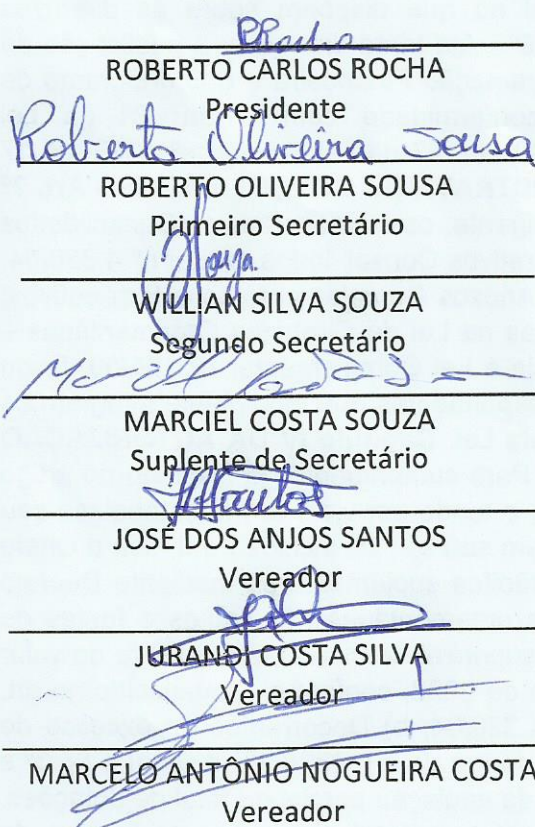 PRocha
ROBERTO CARLOS ROCHA
Presidente
Roberto Oliveira Sousa
ROBERTO OLIVEIRA SOUSA
Primeiro Secretário
Souza
WILLIAN SILVA SOUZA
Segundo Secretário
MARCIEL COSTA SOUZA
Suplente de Secretário
JASantos
JOSÉ DOS ANJOS SANTOS
Vereador
JURANDI COSTA SILVA
Vereador
MARCELO ANTÔNIO NOGUEIRA COSTA
Vereador